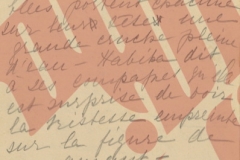 elles portent chacune
sur leurs têtes une
grande cruche pleine
d'eau - Habiba dit
à ses compagnes qu'elle
est surprise de voir
la tristesse empreinte
sur la figure de